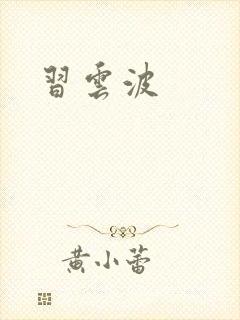 習雲波
黄小蕾